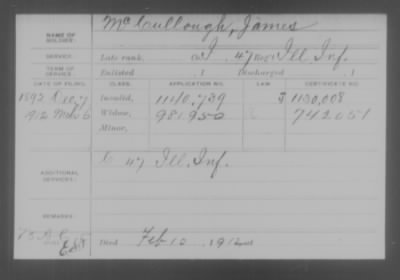 NAME OF SOLDIER: McCullough, James
SERVICE: Late rank, Co I, 47 Reg't Ill. Inf.
TERM OF SERVICE: Enlisted , 1 Discharged , 1
DATE OF FILING. CLASS. APPLICATION NO. LAW. CERTIFICATE NO.
1892 Dec. 7 Invalid, 1140,739 $ 1130,008
1912 Mch 6 Widow, 981950 742051
Minor,
ADDITIONAL SERVICES: C 47 Ill. Inf.
REMARKS:
Died Feb 10, 1912 at